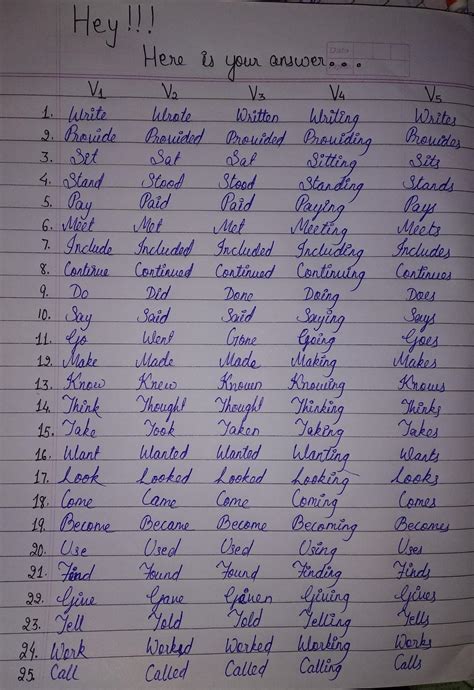 Hey!!!
Date
Here is your answer...
V1 V2 V3 V4 V5
1. Write Wrote Written Writing Writes
2. Provide Provided Provided Providing Provides
3. Sit Sat Sat Sitting Sits
4. Stand Stood Stood Standing Stands
5. Pay Paid Paid Paying Pays
6. Meet Met Met Meeting Meets
7. Include Included Included Including Includes
8. Continue Continued Continued Continuing Continues
9. Do Did Done Doing Does
10. Say Said Said Saying Says
11. Go Went Gone Going Goes
12. Make Made Made Making Makes
13. Know Knew Known Knowing Knows
14. Think Thought Thought Thinking Thinks
15. Take Took Taken Taking Takes
16. Want Wanted Wanted Wanting Wants
17. Look Looked Looked Looking Looks
18. Come Came Come Coming Comes
19. Become Became Become Becoming Becomes
20. Use Used Used Using Uses
21. Find Found Found Finding Finds
22. Give Gave Given Giving Gives
23. Tell Told Told Telling Tells
24. Work Worked Worked Working Works
25. Call Called Called Calling Calls